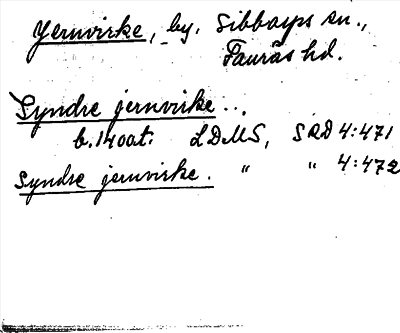 Yernvirke, by. Sibbarps sn.,
Faurås hd.
Syndre jernvirke...
b.1400at. LDMS, SRD 4:471
Syndre jernvirke. " " 4:472